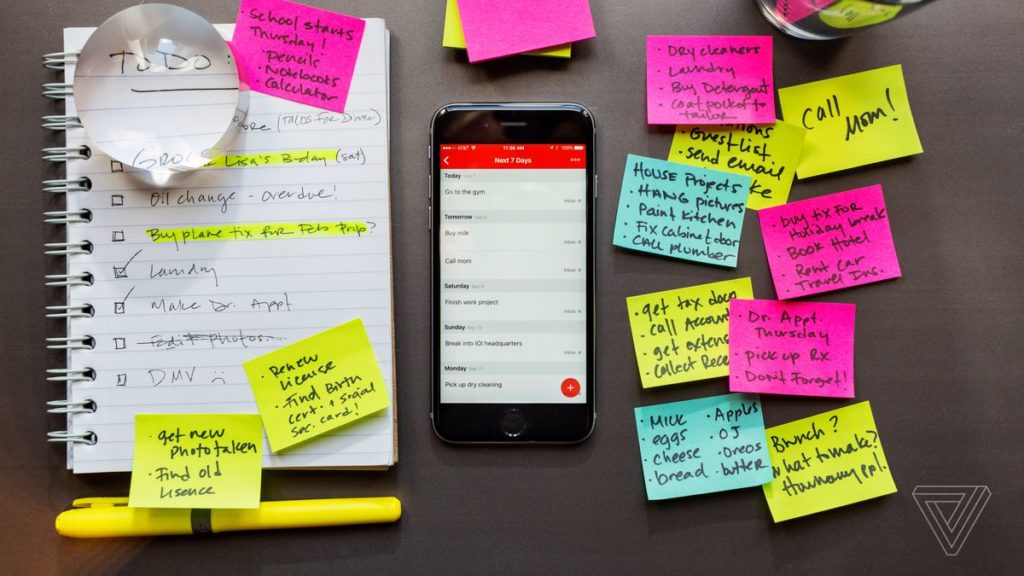 To Do:
GROC
(TACOS FOR Dinner)
Lisa's B-day (sat)
Oil change - overdue!
Buy plane tix for Feb trip?
Laundry
Make Dr. Appt
Edit photos
DMV ☹
School starts
Thursday!
· Pencils
· Notebooks
· Calculator
Renew
License
· Find Birth
cert. + Social
Sec. card!
· Get new
photo taken
· Find old
Lisence
AT&T
11:30 AM
100%
Next 7 Days
Today Sep 7
Go to the gym
Inbox
Tomorrow Sep 8
Buy milk
Inbox
Call mom
Inbox
Saturday Sep 9
Finish work project
Inbox
Sunday Sep 10
Break into IOI headquarters
Inbox
Monday
Pick up dry cleaning
· Dry cleaners
· Laundry
· Buy Detergent
· Coat pocket to
tailor
Call
Mom!
Guest List
· send email
ke
House Projects
· HANG pictures
· Paint Kitchen
· Fix cabinet door
· CALL plumber
· Buy tix FOR
Holiday break
· Book Hotel
· Rent Car
· Travel Ins.
· get tax docs
· call Account
· get extens
· Collect Rece
· Dr. Appt.
Thursday
· pick up Rx
· Don't Forget!
· Milk
· eggs
· cheese
· bread
· Apples
· OJ
· Oreos
· butter
Brunch?
what to make?
· How many ppl.